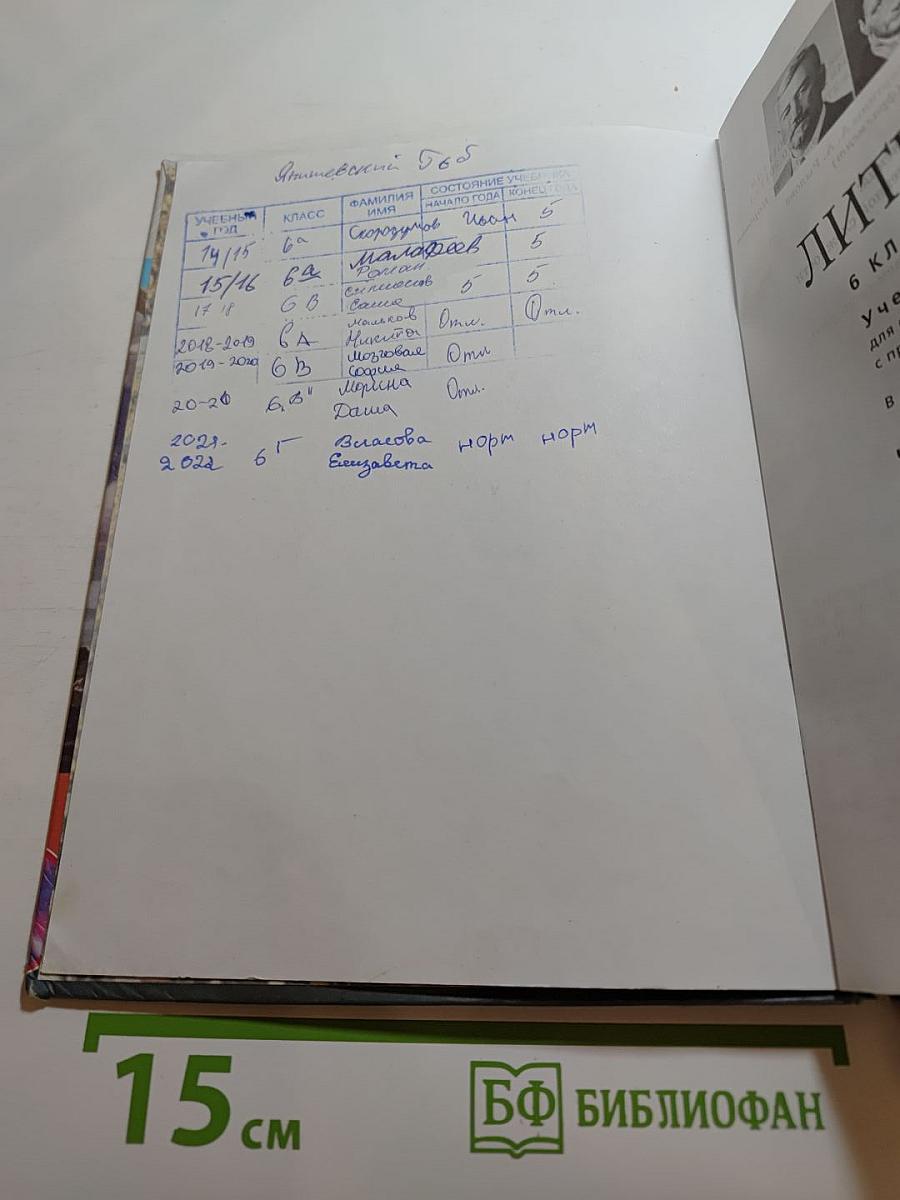 Янишевский Глеб
УЧЕБНЫЙ ГОД КЛАСС ФАМИЛИЯ ИМЯ СОСТОЯНИЕ УЧЕБНИКА
НАЧАЛО ГОДА КОНЕЦ ГОДА
14/15 6а Скоразумов Иван 5
15/16 6а Малафеев Роман 5
17 18 6В Саша 5 5
2018-2019 6А Мальков Никита Отл. Отл.
2019-2020 6В Мозговая София Отл
20-21 6„В" Морина Даша Отл.
2021-2022 6Г Власова Елизавета норм норм
6 КЛ
Уче
для
с пр
В
15 см
БФ БИБЛИОФАН